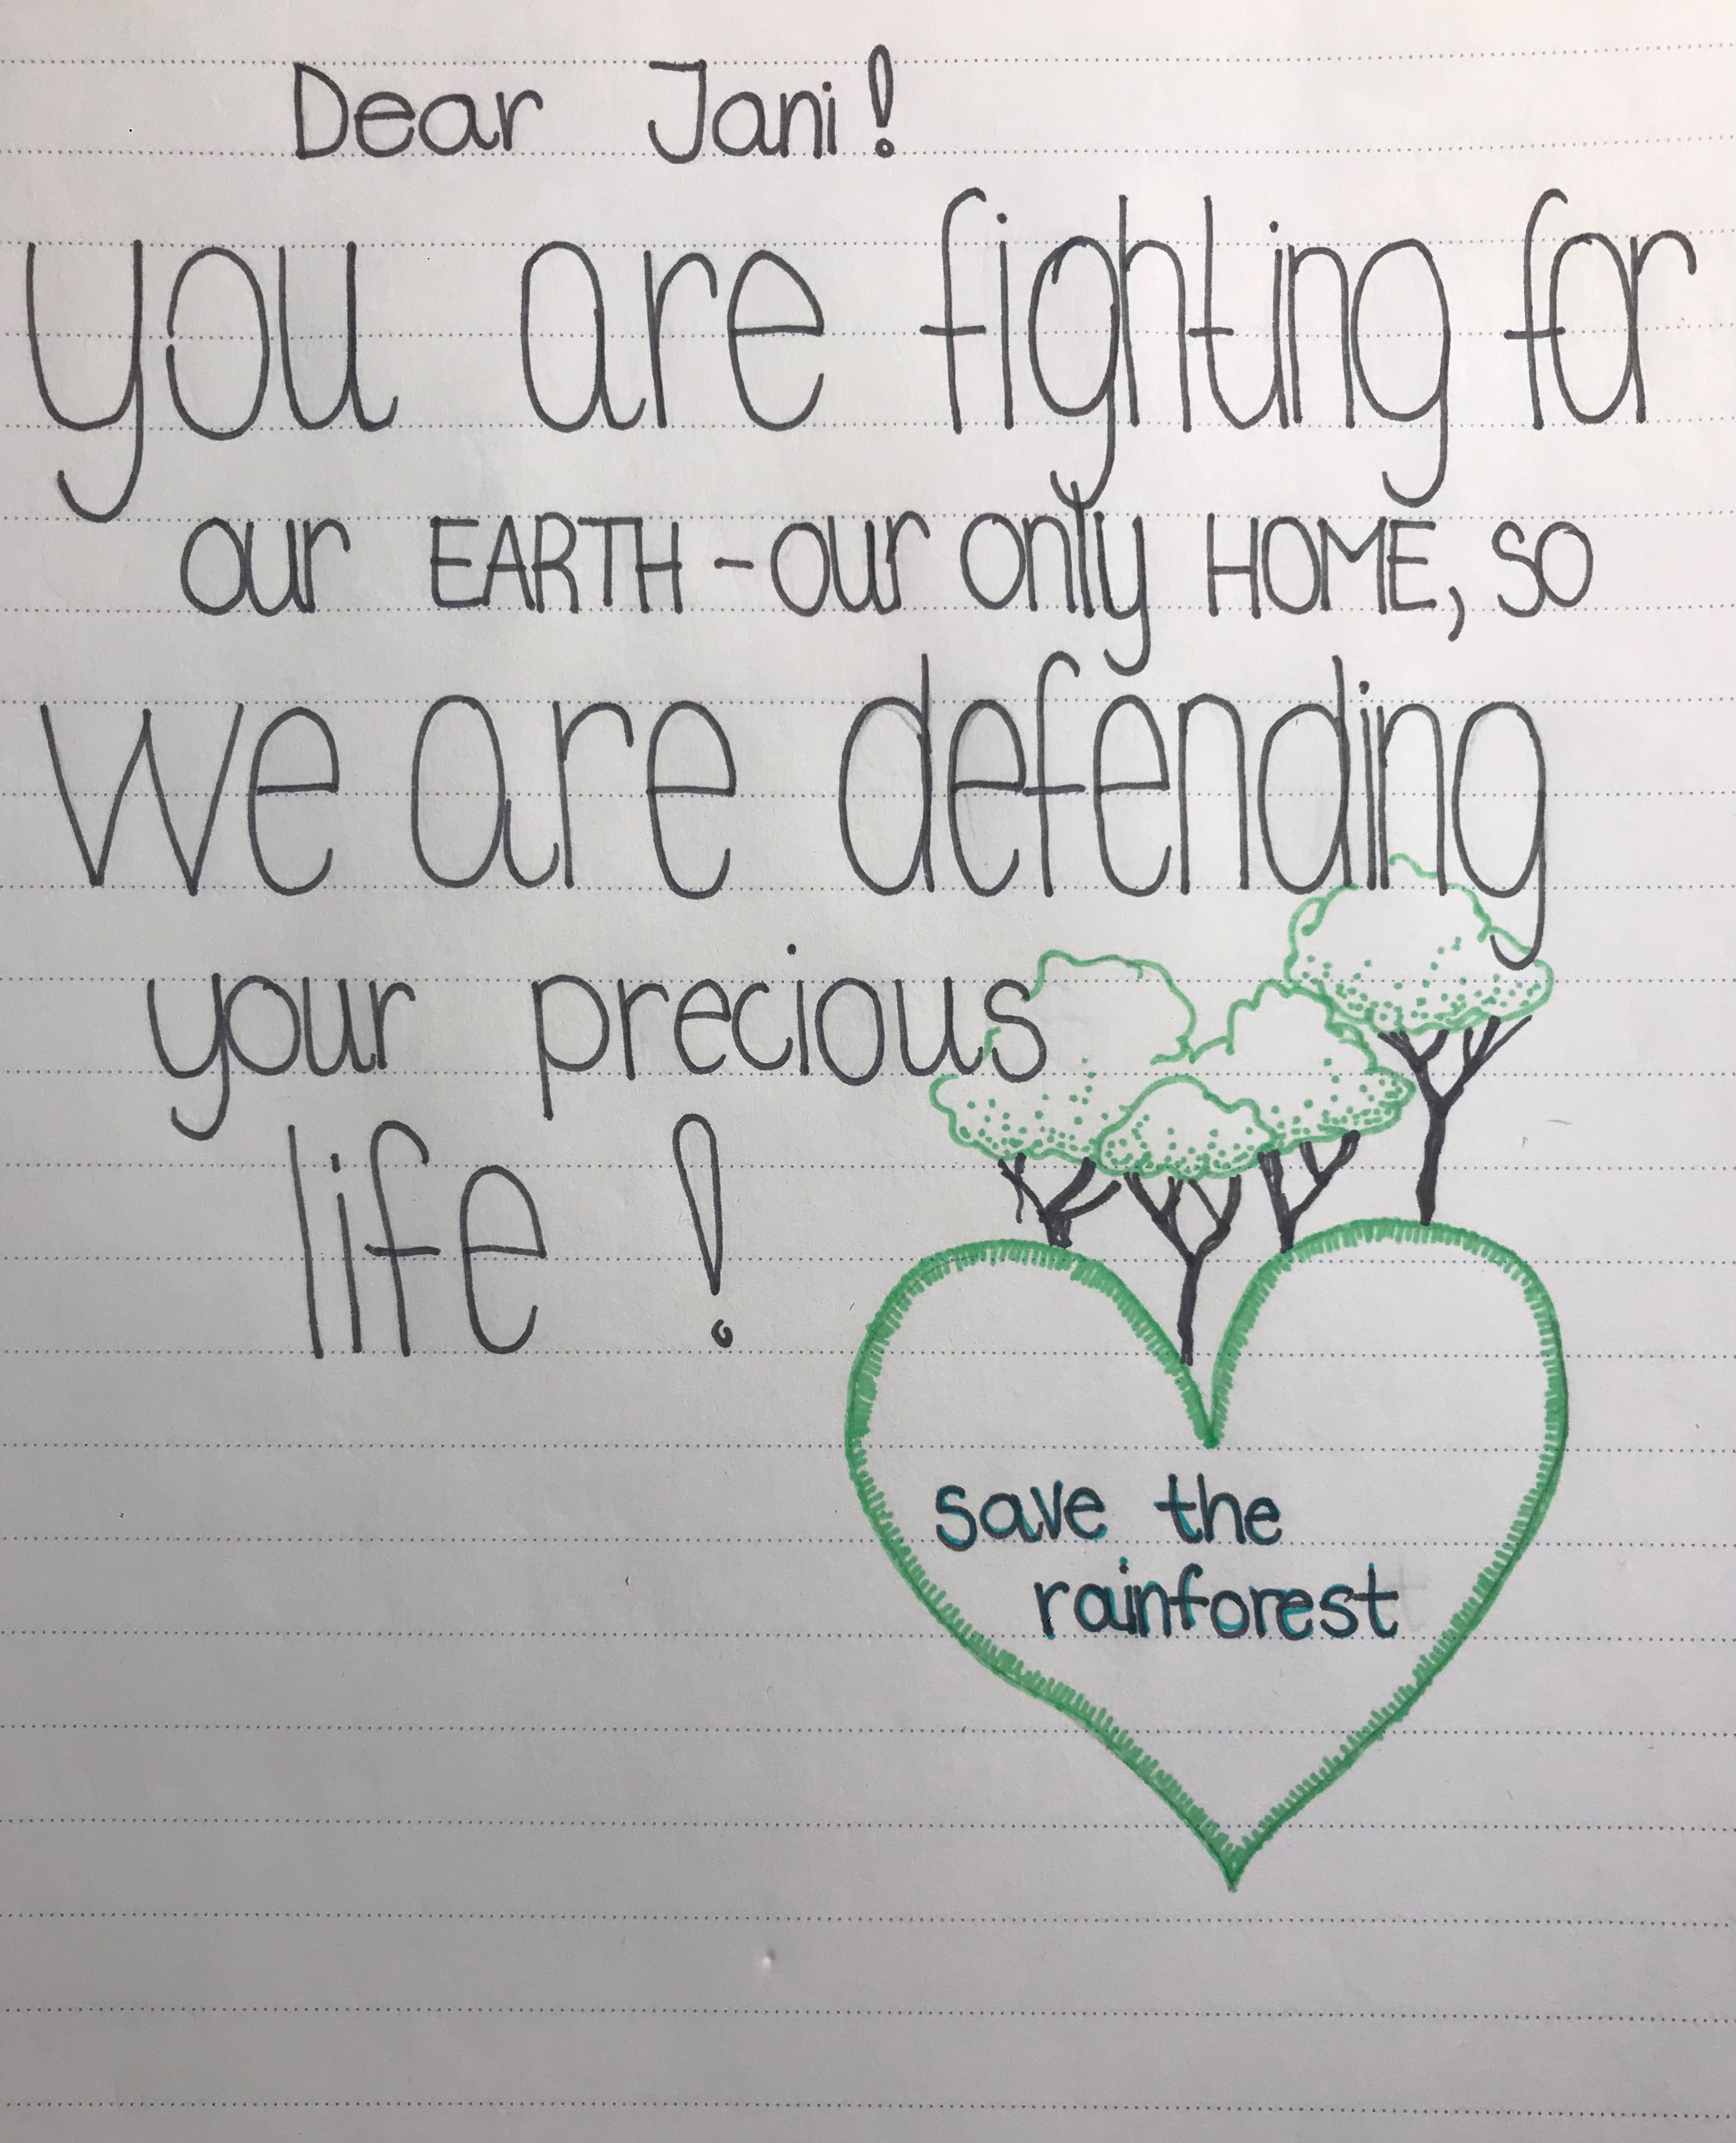 Dear Jani!
you are fighting for
our EARTH - our only HOME, so
we are defending
your precious
life !
save the
rainforest